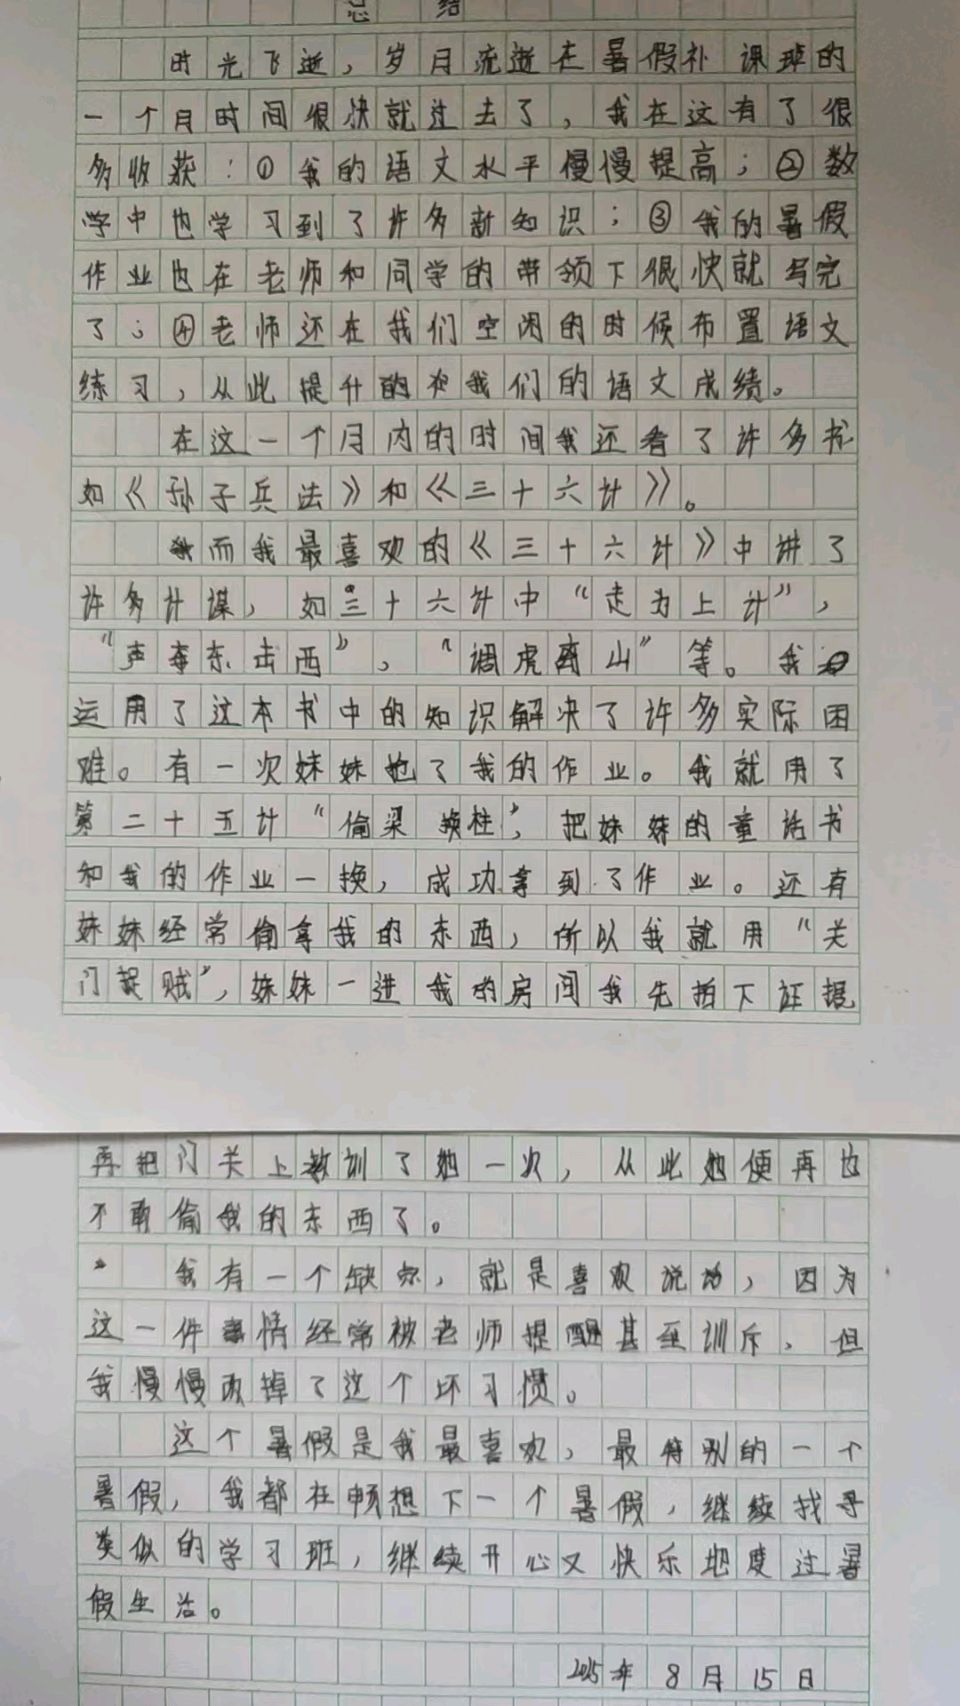 总 结
时光飞逝，岁月流逝在暑假补课班的
一个月时间很快就过去了，我在这有了很
多收获：①我的语文水平慢慢提高；②数
学中也学习到了许多新知识；③我的暑假
作业也在老师和同学的带领下很快就写完
了；④老师还在我们空闲的时候布置语文
练习，从此提升的我们的语文成绩。
在这一个月内的时间我还看了许多书
如《孙子兵法》和《三十六计》。
而我最喜欢的《三十六计》中讲了
许多计谋，如三十六计中“走为上计”，
“声东击西”，“调虎离山”等。我
运用了这本书中的知识解决了许多实际困
难。有一次妹妹抢了我的作业。我就用了
第二十五计“偷梁换柱”，把妹妹的童话书
和我的作业一换，成功拿到了作业。还有
妹妹经常偷拿我的东西，所以我就用“关
门捉贼”，妹妹一进我的房间我先拍下证据
再把门关上教训了她一次，从此她便再也
不敢偷我的东西了。
我有一个缺点，就是喜欢说话，因为
这一件事情经常被老师提醒甚至训斥，但
我慢慢改掉了这个坏习惯。
这个暑假是我最喜欢，最特别的一个
暑假，我都在畅想下一个暑假，继续找寻
类似的学习班，继续开心又快乐地度过暑
假生活。
2025年8月15日